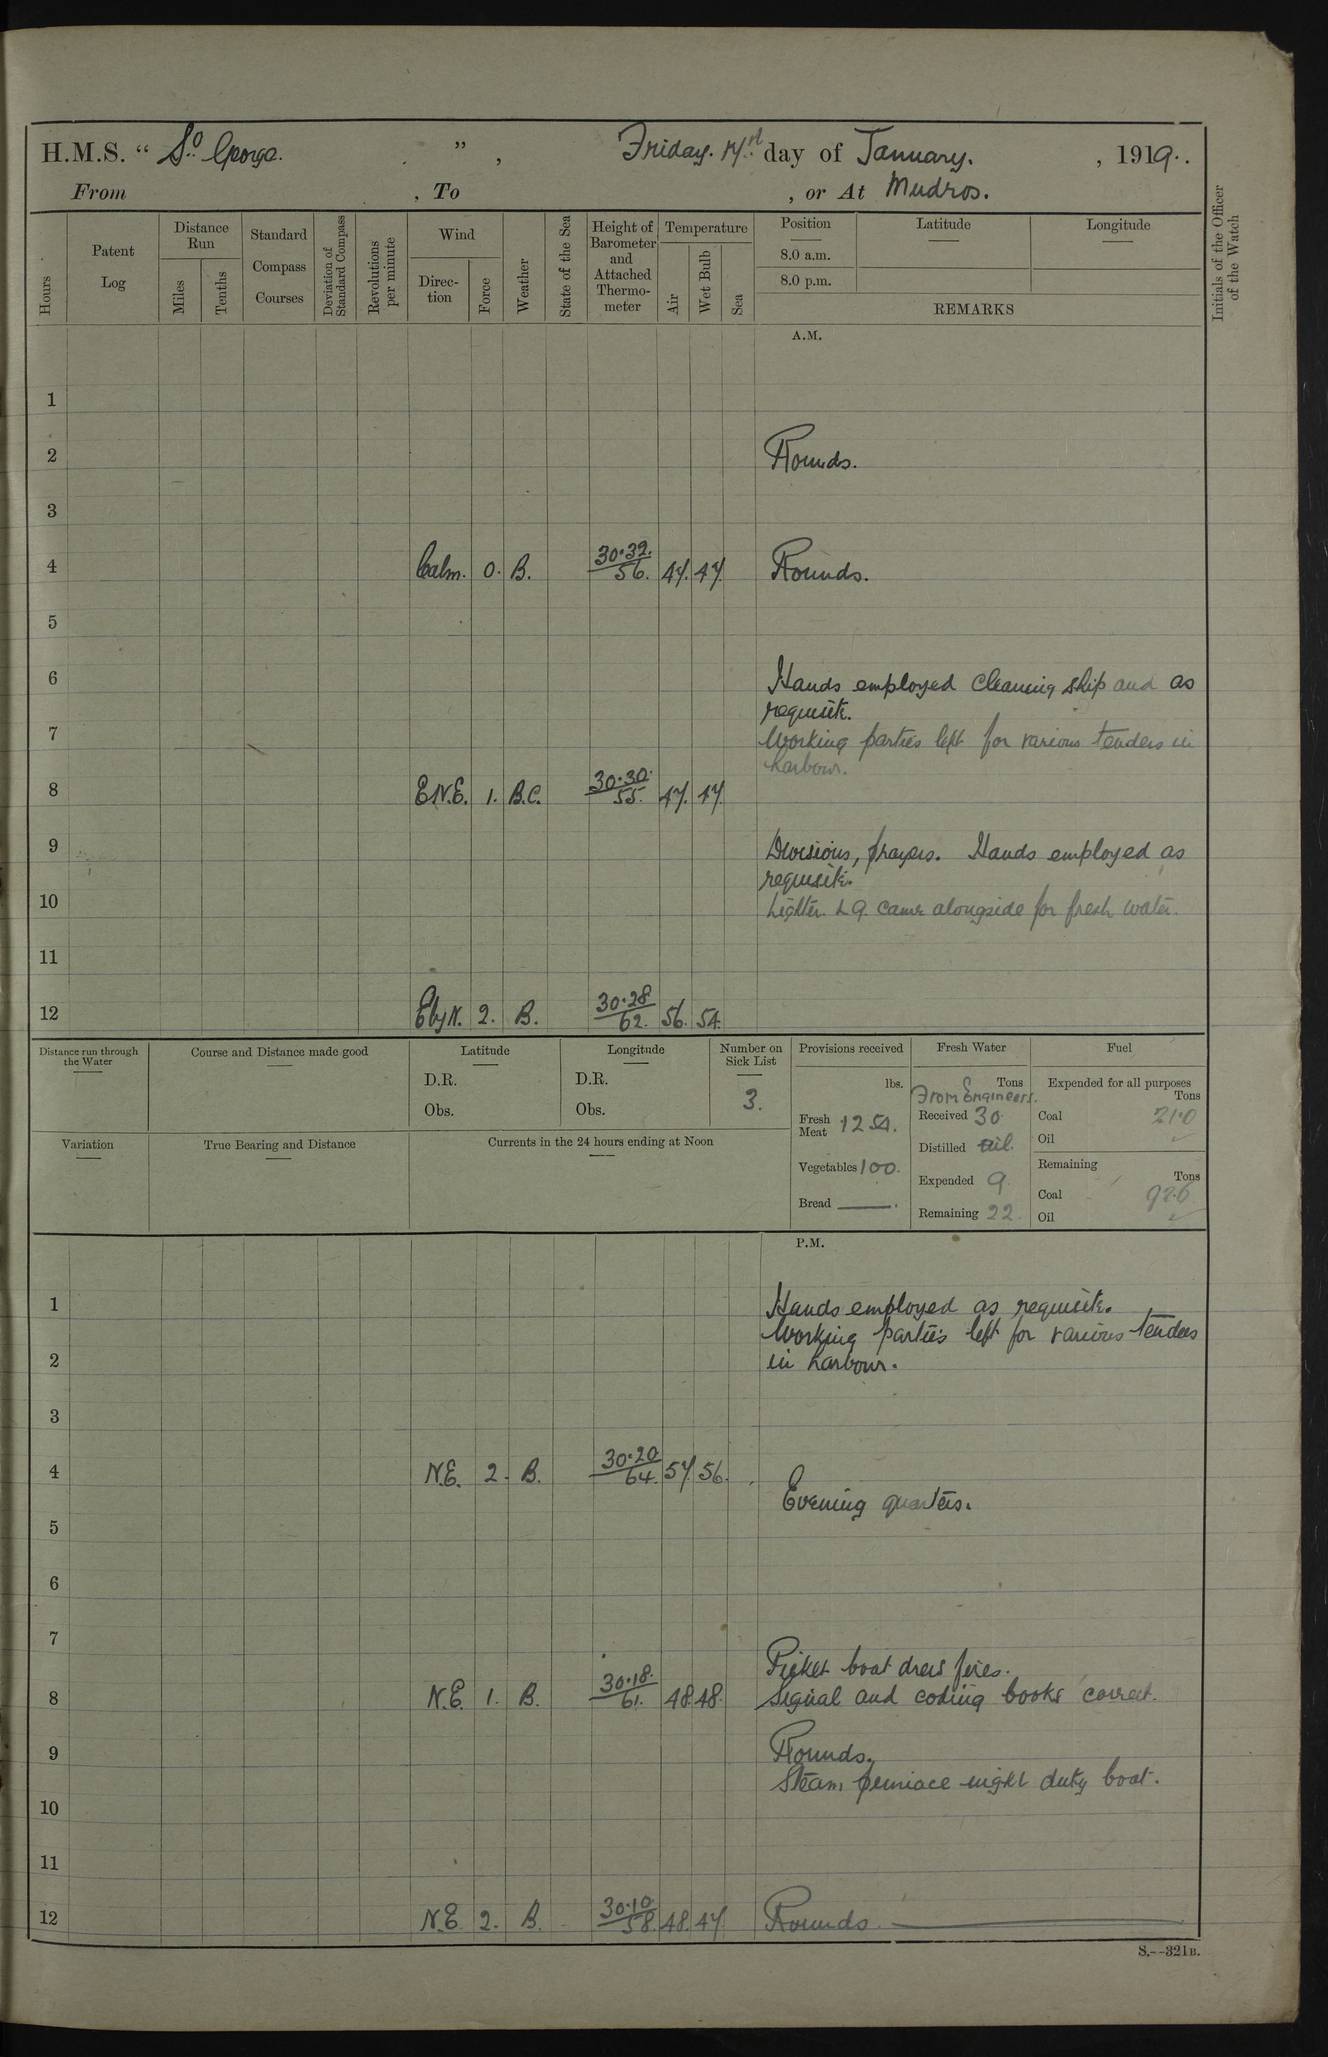 H.M.S. “ St George. ” , Friday. 17th day of January. , 1919.
From , To , or At Mudros.
Hours
Patent Log
Distance Run
Miles
Tenths
Standard Compass Courses
Deviation of Standard Compass
Revolutions per minute
Wind
Direction
Force
Weather
State of the Sea
Height of Barometer and Attached Thermometer
Temperature
Air
Wet Bulb
Sea
Position
8.0 a.m.
8.0 p.m.
Latitude
Longitude
REMARKS
Initials of the Officer of the Watch
A.M.
1
2 Rounds.
3
4 Calm. 0. B. 30.32. 56. 47. 47. Rounds.
5
6 Hands employed cleaning ship and as
requisite.
7 Working parties left for various tenders in
harbour.
8 E.N.E. 1. B.C. 30.30. 55. 47. 47.
9 Divisions, prayers. Hands employed as
requisite.
10 Lighter. L 9. came alongside for fresh water.
11
12 E by N. 2. B. 30.28 62. 56. 54.
Distance run through the Water
Course and Distance made good
Latitude
D.R.
Obs.
Longitude
D.R.
Obs.
Number on Sick List
3.
Provisions received
lbs.
Fresh Meat 125.
Vegetables 100.
Bread —.
Fresh Water
Tons
From Engineers.
Received 30
Distilled nil.
Expended 9
Remaining 22.
Fuel
Expended for all purposes
Tons
Coal 21.0
Oil
Remaining
Tons
Coal 926
Oil
Variation
True Bearing and Distance
Currents in the 24 hours ending at Noon
P.M.
1 Hands employed as requisite.
Working parties left for various tenders
2 in harbour.
3
4 N.E. 2. B. 30.20 64. 57. 56.
Evening quarters.
5
6
7
Picket boat drew fires.
8 N.E. 1. B. 30.18. 61. 48. 48. Signal and coding books correct.
9 Rounds.
Steam pinnace night duty boat.
10
11
12 N.E. 2. B. 30.10 58. 48. 47. Rounds.
S.--321B.